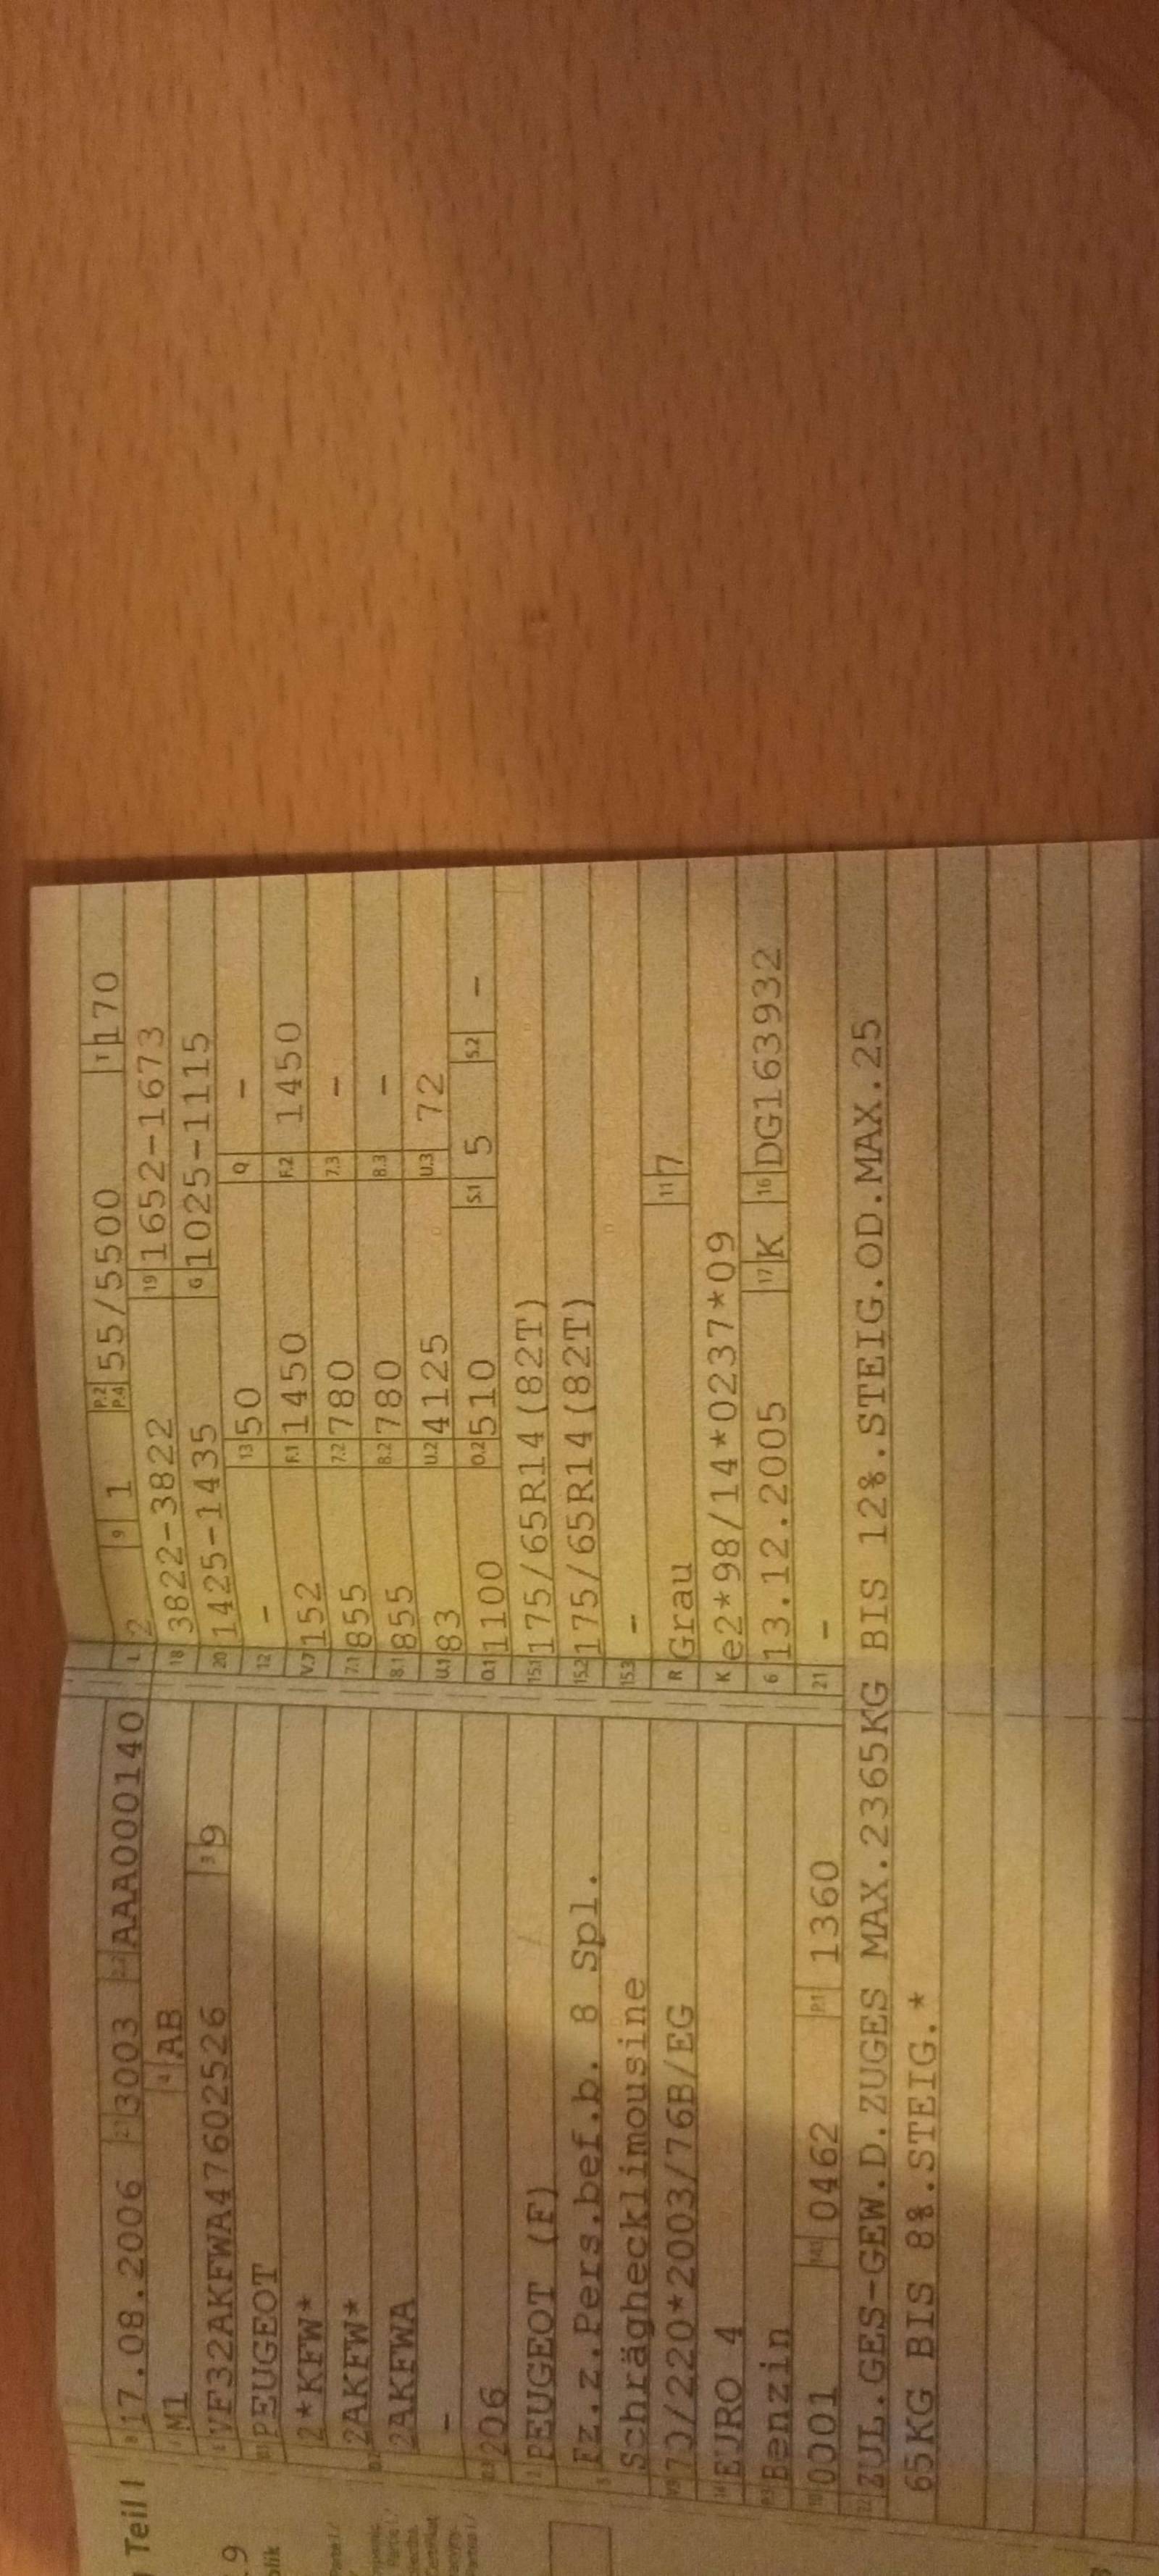 Teil I
9
blik
B 17.08.2006 2.1 3003 2.2 AAA000140
M1 4 AB
E VF32AKFWA47602526 3 9
D.1 PEUGEOT
2*KFW*
D.2 2AKFW*
2AKFWA
-
D.3 206
2 PEUGEOT (F)
5 Fz.z.Pers.bef.b. 8 Spl.
Schräghecklimousine
V.9 70/220*2003/76B/EG
14 EURO 4
P.3 Benzin
10 0001 14.1 0462 P.1 1360
22 ZUL.GES-GEW.D.ZUGES MAX.2365KG BIS 12%.STEIG.OD.MAX.25
65KG BIS 8%.STEIG.*
L 2 9 1 P.2 P.4 55/5500 T 170
18 3822-3822 19 1652-1673
20 1425-1435 G 1025-1115
12 - 13 50 Q -
V.7 152 F.1 1450 F.2 1450
7.1 855 7.2 780 7.3 -
8.1 855 8.2 780 8.3 -
U.1 83 U.2 4125 U.3 72
O.1 1100 O.2 510 S.1 5 S.2 -
15.1 175/65R14(82T)
15.2 175/65R14(82T)
15.3 -
R Grau 11 7
K e2*98/14*0237*09
6 13.12.2005 17 K 16 DG163932
21 -